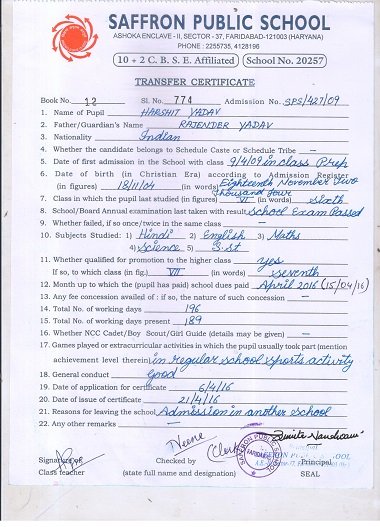 SAFFRON PUBLIC SCHOOL
ASHOKA ENCLAVE - II, SECTOR - 37, FARIDABAD-121003 (HARYANA)
PHONE : 2255735, 4128196
10 + 2 C. B. S. E. Affiliated School No. 20257
TRANSFER CERTIFICATE
Book No. 12 Sl. No. 774 Admission No. SPS/427/09
1. Name of Pupil HARSHIT YADAV
2. Father/Guardian's Name RAJENDER YADAV
3. Nationality Indian
4. Whether the candidate belongs to Schedule Caste or Schedule Tribe —
5. Date of first admission in the School with class 9/4/09 in class Prep
6. Date of birth (in Christian Era) according to Admission Register
(in figures) 18/11/04 (in words) Eighteenth November Two
Thousand four
7. Class in which the pupil last studied (in figures) VI (in words) sixth
8. School/Board Annual examination last taken with result School Exam Passed
9. Whether failed, if so once/twice in the same class —
10. Subjects Studied: 1) Hindi 2) English 3) Maths
4) Science 5) S.st
11. Whether qualified for promotion to the higher class yes
If so, to which class (in fig.) VII (in words) seventh
12. Month up to which the (pupil has paid) school dues paid April 2016 (15/04/16)
13. Any fee concession availed of : if so, the nature of such concession —
14. Total No. of working days 196
15. Total No. of working days present 189
16. Whether NCC Cadet/Boy Scout/Girl Guide (details may be given) —
17. Games played or extracurricular activities in which the pupil usually took part (mention
achievement level therein) in regular school sports activity
18. General conduct good
19. Date of application for certificate 6/4/16
20. Date of issue of certificate 21/4/16
21. Reasons for leaving the school Admission in another school
22. Any other remarks —
(Clerk)
Signature of Checked by Principal
Class teacher (state full name and designation) SEAL